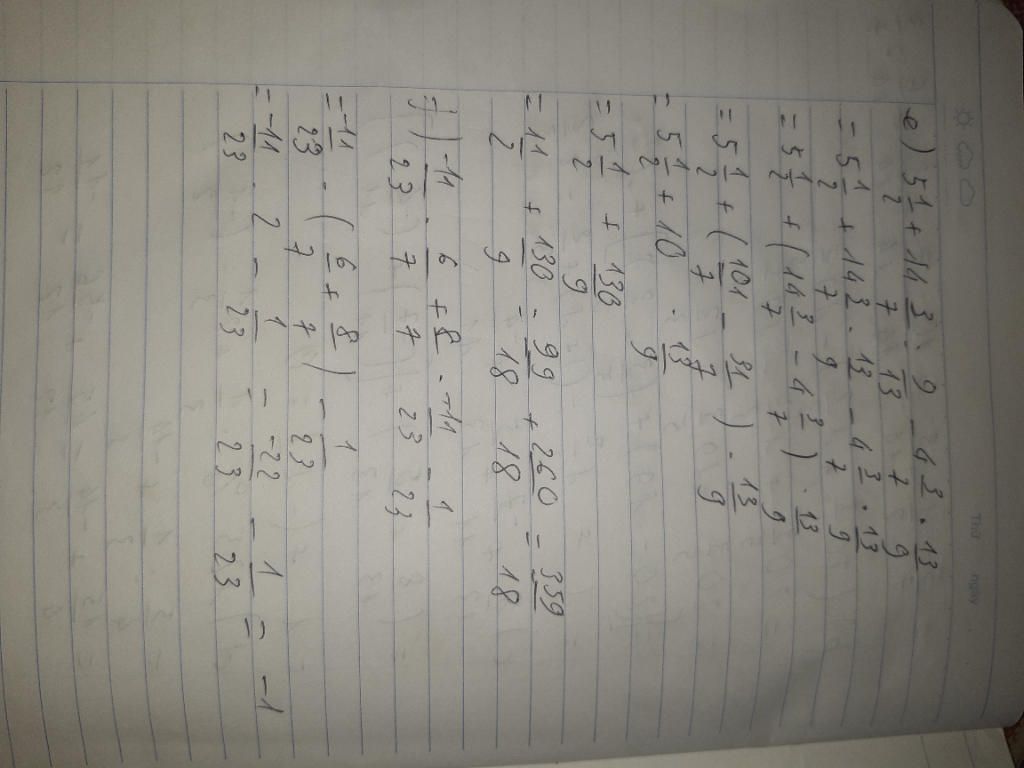 Thứ ngày
e) 5 1/2 + 14 3/7 : 9/13 - 4 3/7 . 13/9
= 5 1/2 + 14 3/7 . 13/9 - 4 3/7 . 13/9
= 5 1/2 + (14 3/7 - 4 3/7) . 13/9
= 5 1/2 + (101/7 - 31/7) . 13/9
= 5 1/2 + 10 . 13/9
= 5 1/2 + 130/9
= 11/2 + 130/9 = 99/18 + 260/18 = 359/18
f) -11/23 . 6/7 + 8/7 . -11/23 - 1/23
= -11/23 . (6/7 + 8/7) - 1/23
= -11/23 . 2 - 1/23 = -22/23 - 1/23 = -1